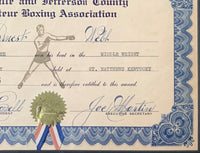 lle and Jefferson County
teur Boxing Association
Webb
his bout in the MIDDLE WEIGHT
held at ST. MATTHEWS KENTUCKY
and is therefore entitled to this award
Joe Martin
EXECUTIVE SECRETARY